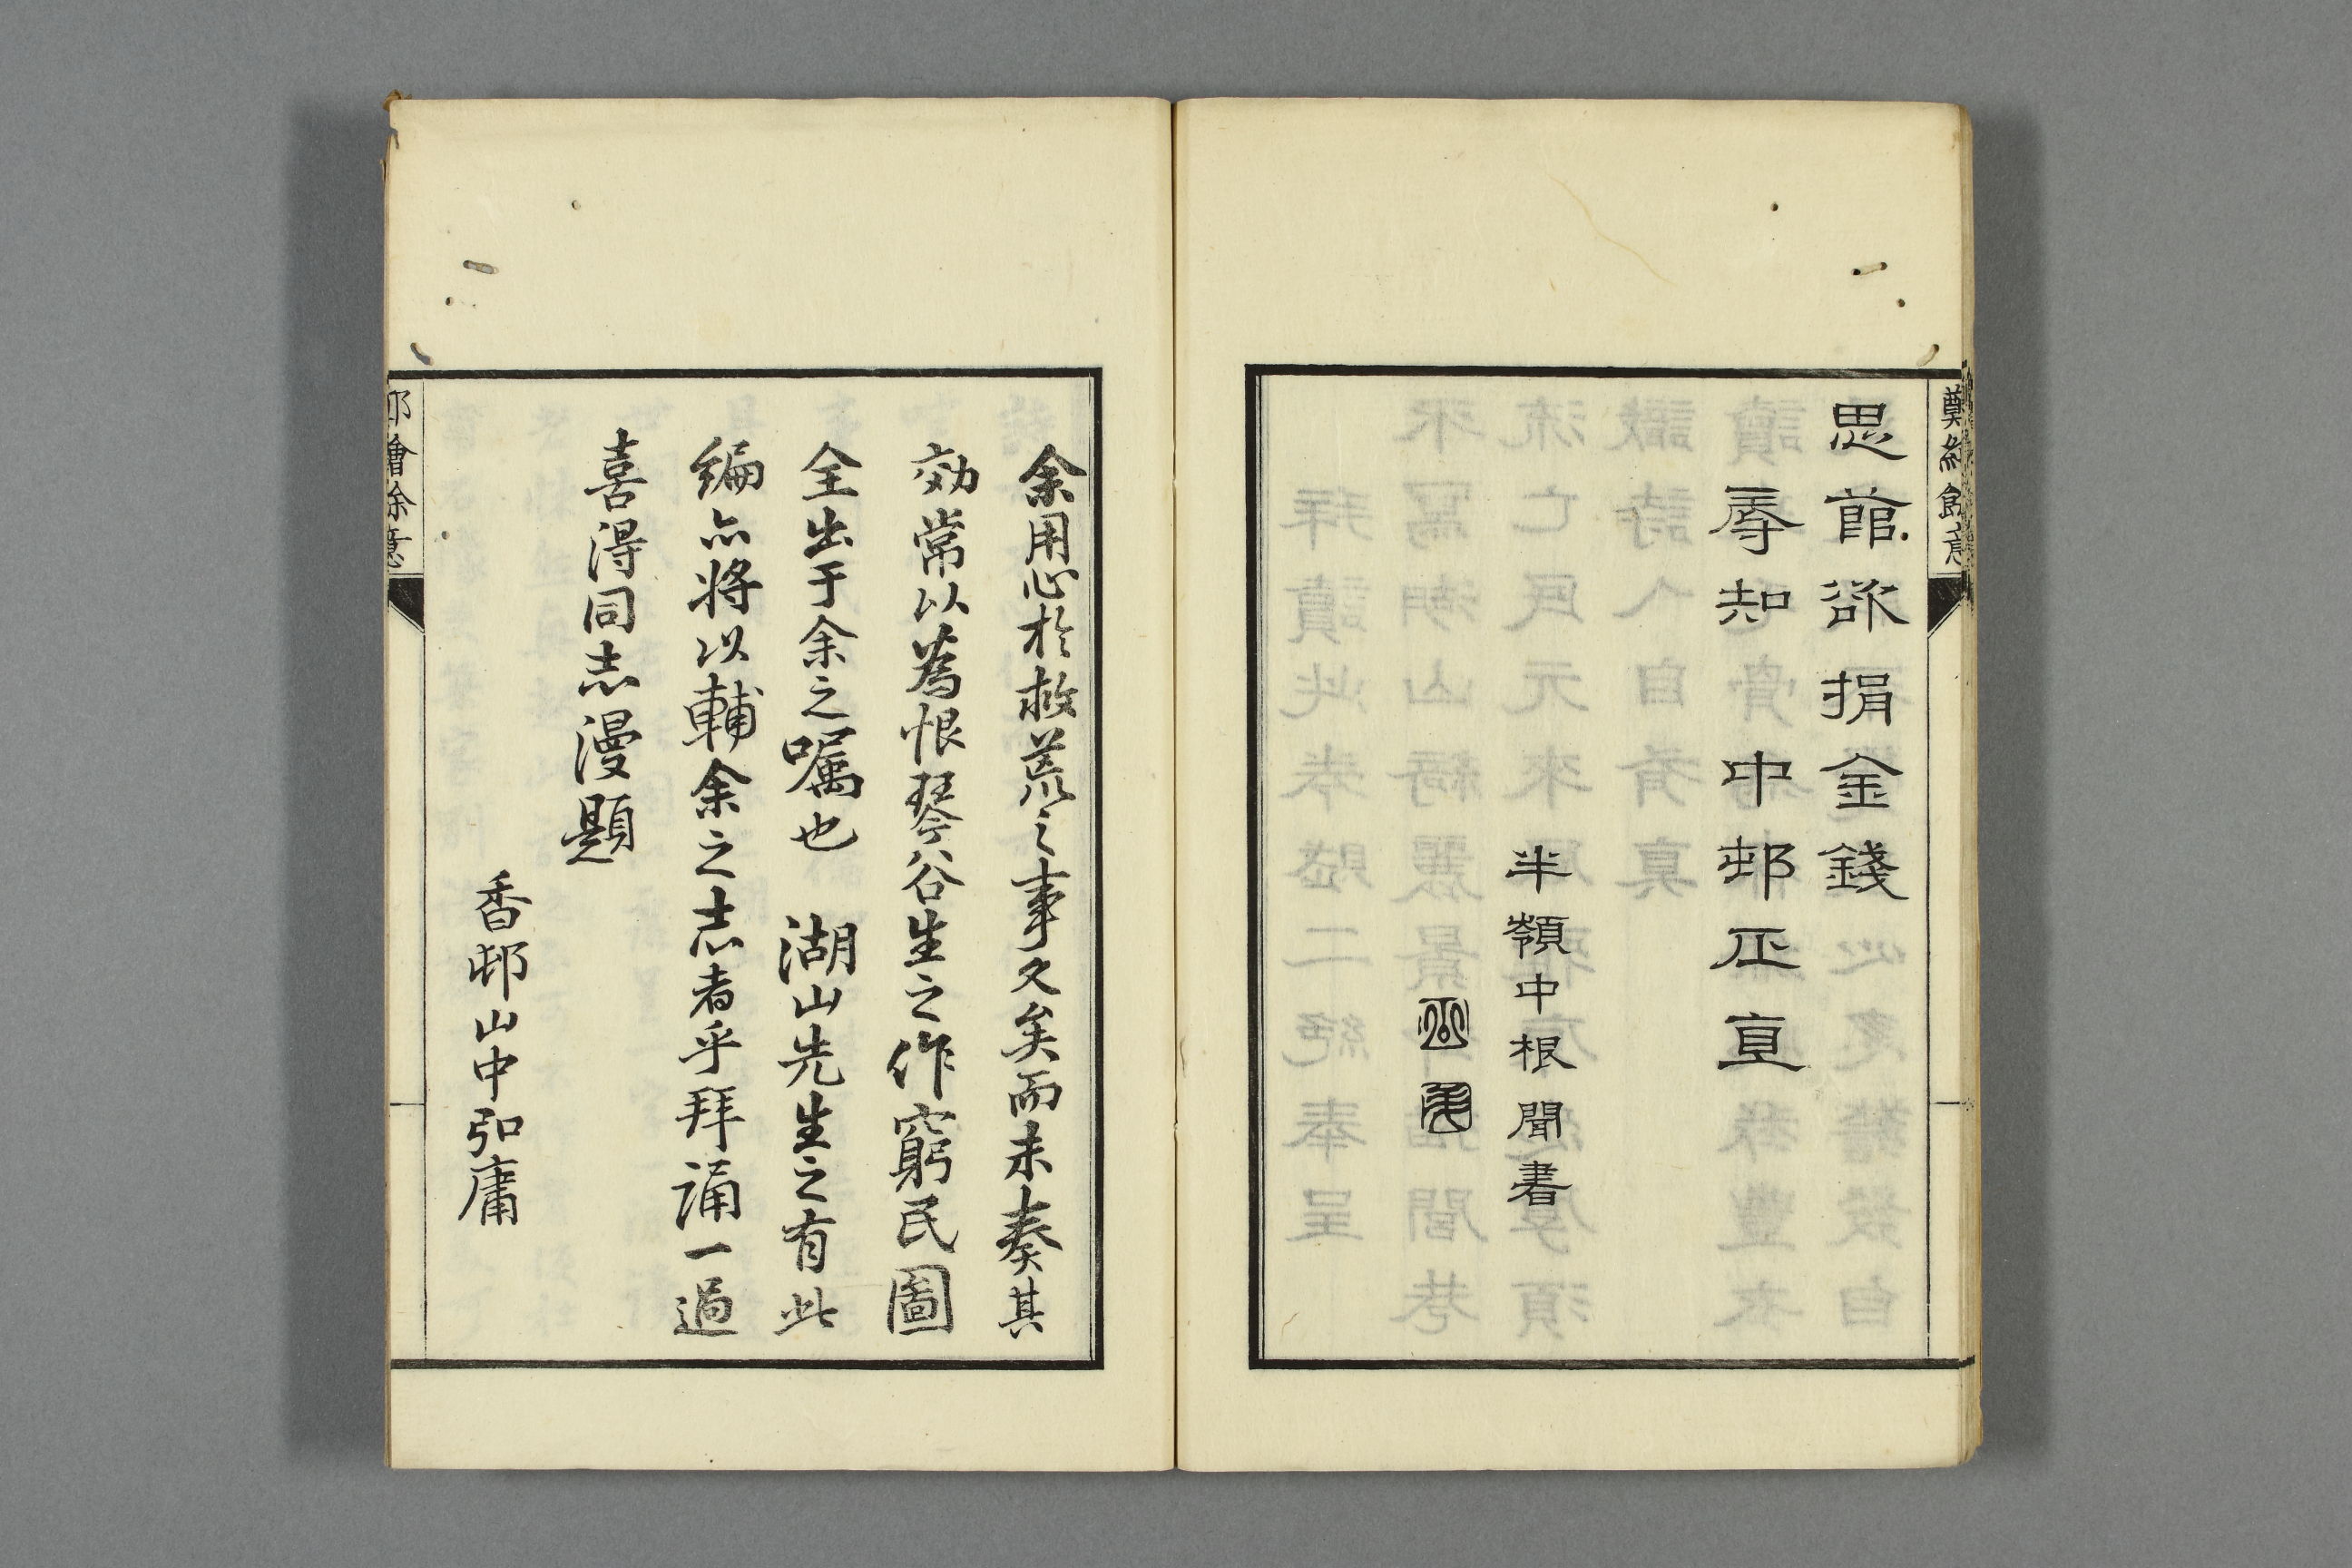 思館欲捐金錢
辱知 中邨正直
半嶺中根聞書
余用心於救荒之事久矣而未奏其
効常以為恨琴谷生之作窮民圖
全出于余之嘱也 湖山先生之有此
編亦將以輔余之志者乎拜誦一過
喜得同志漫題
香邨山中弘庸